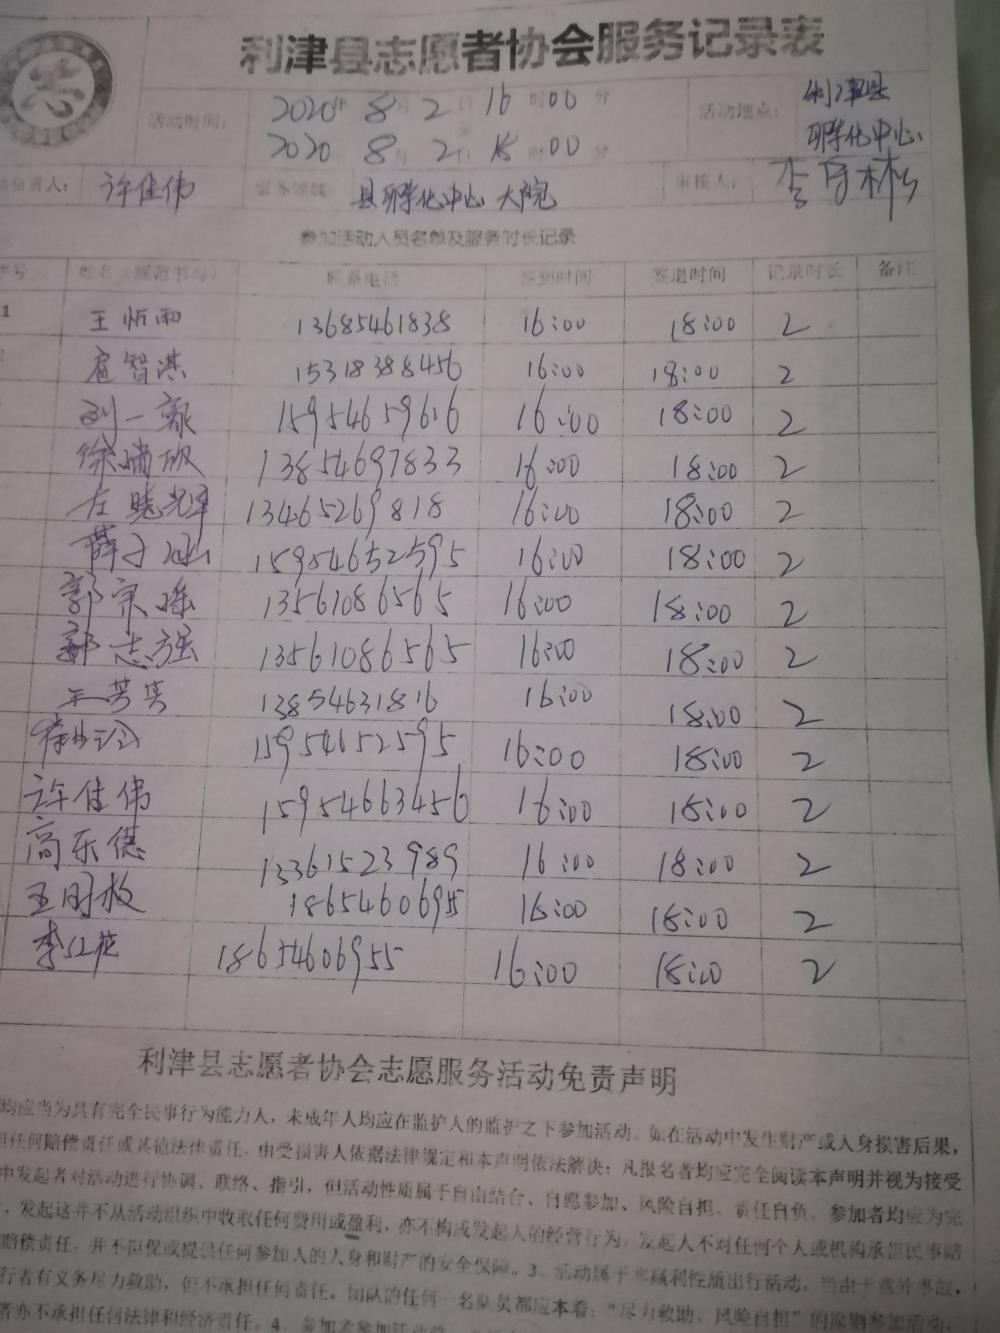 利津县志愿者协会服务记录表
活动时间： 2020年 8月 2日 16时00分 活动地点： 利津县
至 孵化中心
2020年 8月 2日 18时00分
负责人： 许佳伟 县孵化中心大院 审核人：
参加活动人员名单及服务时长记录
序号 姓名（规范书写） 联系电话 签到时间 签退时间 记录时长 备注
1 王忻雨 13685461838 16:00 18:00 2
扈智淇 15318388456 16:00 18:00 2
刘一 15954659616 16:00 18:00 2
徐 13854697833 16:00 18:00 2
左晓泽 13465269818 16:00 18:00 2
薛子 15954652595 16:00 18:00 2
郭宗 13561086565 16:00 18:00 2
郭志强 13561086565 16:00 18:00 2
王芳 13854631816 16:00 18:00 2
15954652595 16:00 18:00 2
许佳伟 15954663456 16:00 18:00 2
高乐德 13361523989 16:00 18:00 2
王明 1865460695 16:00 18:00 2
李红花 18654606955 16:00 18:00 2
利津县志愿者协会志愿服务活动免责声明
均应当为具有完全民事行为能力人，未成年人均应在监护人的监护之下参加活动。如在活动中发生财产或人身损害后果，
任何赔偿责任或其他法律责任，由受损害人依据法律规定和本声明依法解决；凡报名者均应完全阅读本声明并视为接受
中发起者对活动进行协调、联络、指引，但活动性质属于自由结合、自愿参加、风险自担、责任自负。参加者均应为完
，发起这并不从活动组织中收取任何费用或盈利，亦不构成发起人的经营行为，发起人不对任何个人或机构承担民事赔
赔偿责任，并不担保或提供任何参加人的人身和财产的安全保障。3、活动属于非赢利性质出行活动，当由于意外事故，
行者有义务尽力救助，但不承担任何责任。团队的任何一名队员都应本着：“尽力救助、风险自担”的原则参加活动，
者亦不承担任何法律和经济责任。4、参加者参加活动